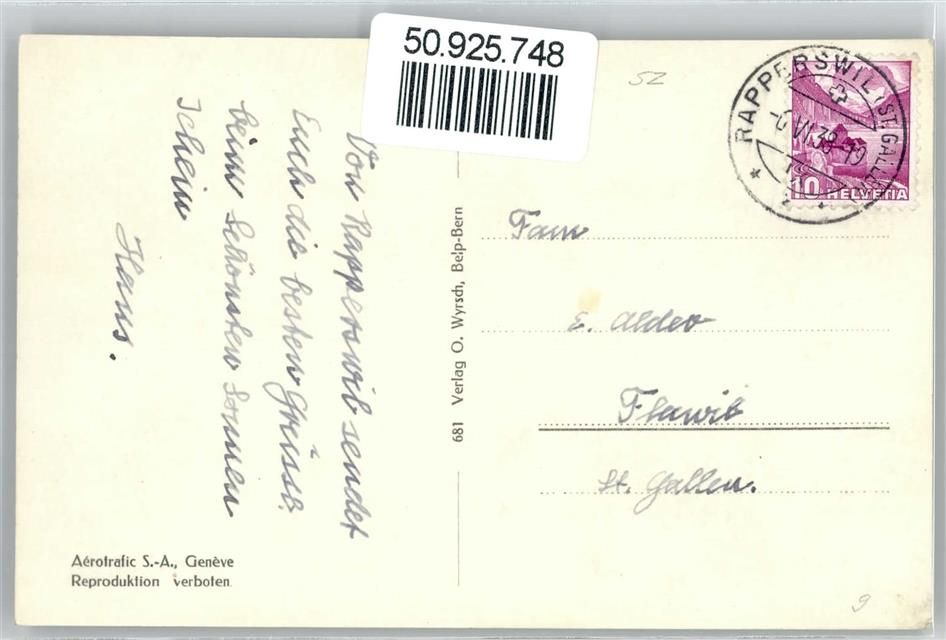 50.925.748
SZ
RAPPERSWIL (ST. GALLEN)
VI.38-19
10 HELVETIA
Von Rapperswil sendet
Euch die besten Grüsse
beim schönsten Sonnen
schein
Hans.
681 Verlag O. Wyrsch, Belp-Bern
Fam
E. Alder
Flawil
St. Gallen.
Aérotrafic S.-A., Genève
Reproduktion verboten
9